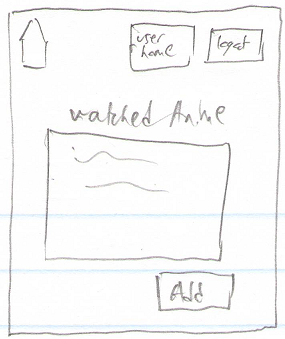 user home
logout
watched Anime
Add